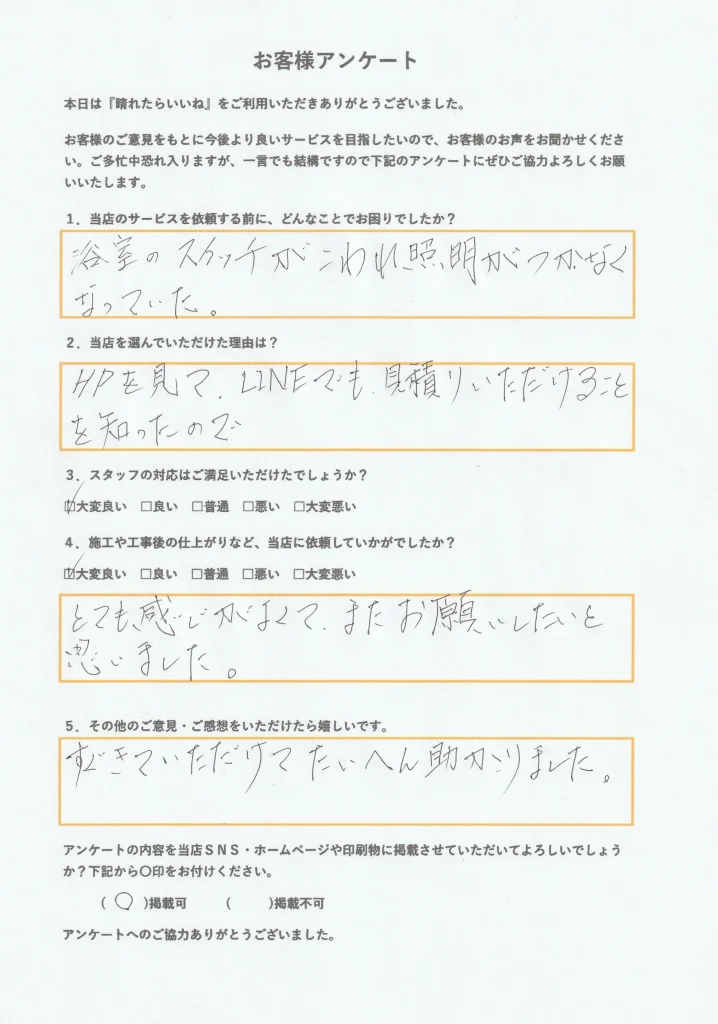 お客様アンケート
本日は『晴れたらいいね』をご利用いただきありがとうございました。
お客様のご意見をもとに今後より良いサービスを目指したいので、お客様のお声をお聞かせくださ
い。ご多忙中恐れ入りますが、一言でも結構ですので下記のアンケートにぜひご協力よろしくお願
いいたします。
1．当店のサービスを依頼する前に、どんなことでお困りでしたか？
浴室のスイッチがこわれ照明がつかなく
なっていた。
2．当店を選んでいただけた理由は？
HPを見て、LINEでも、見積りいただけること
を知ったので
3．スタッフの対応はご満足いただけたでしょうか？
☑大変良い □良い □普通 □悪い □大変悪い
4．施工や工事後の仕上がりなど、当店に依頼していかがでしたか？
☑大変良い □良い □普通 □悪い □大変悪い
とても感じがよくて、またお願いしたいと
思いました。
5．その他のご意見・ご感想をいただけたら嬉しいです。
すぐきていただけてたいへん助かりました。
アンケートの内容を当店ＳＮＳ・ホームページや印刷物に掲載させていただいてよろしいでしょう
か？下記から〇印をお付けください。
(〇)掲載可 ( )掲載不可
アンケートへのご協力ありがとうございました。